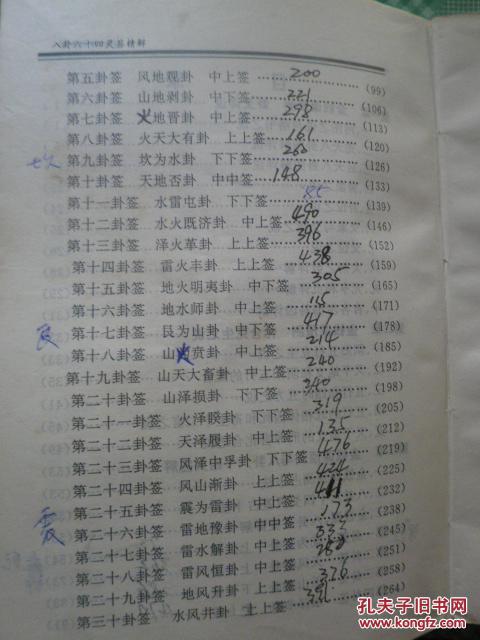 八卦六十四灵签精解
第五卦签 风地观卦 中上签 200 (99)
第六卦签 山地剥卦 中下签 221 (106)
第七卦签 火地晋卦 中上签 298 (113)
第八卦签 火天大有卦 上上签 161 (120)
坎 第九卦签 坎为水卦 下下签 260 (126)
第十卦签 天地否卦 中中签 148 (133)
第十一卦签 水雷屯卦 下下签 (139)
第十二卦签 水火既济卦 中上签 490 (146)
第十三卦签 泽火革卦 上上签 396 (152)
第十四卦签 雷火丰卦 上上签 438 (159)
第十五卦签 地火明夷卦 中下签 305 (165)
第十六卦签 地水师卦 中上签 115 (171)
艮 第十七卦签 艮为山卦 中下签 417 (178)
第十八卦签 山火贲卦 中上签 214 (185)
第十九卦签 山天大畜卦 中上签 240 (192)
第二十卦签 山泽损卦 下下签 340 (198)
第二十一卦签 火泽睽卦 下下签 319 (205)
第二十二卦签 天泽履卦 中上签 135 (212)
第二十三卦签 风泽中孚卦 下下签 476 (219)
第二十四卦签 风山渐卦 上上签 424 (225)
震 第二十五卦签 震为雷卦 中上签 411 (232)
第二十六卦签 雷地豫卦 中中签 173 (238)
第二十七卦签 雷水解卦 中上签 333 (245)
第二十八卦签 雷风恒卦 中上签 (251)
第二十九卦签 地风升卦 上上签 326 (258)
第三十卦签 水风井卦 上上签 391 (264)
孔夫子旧书网